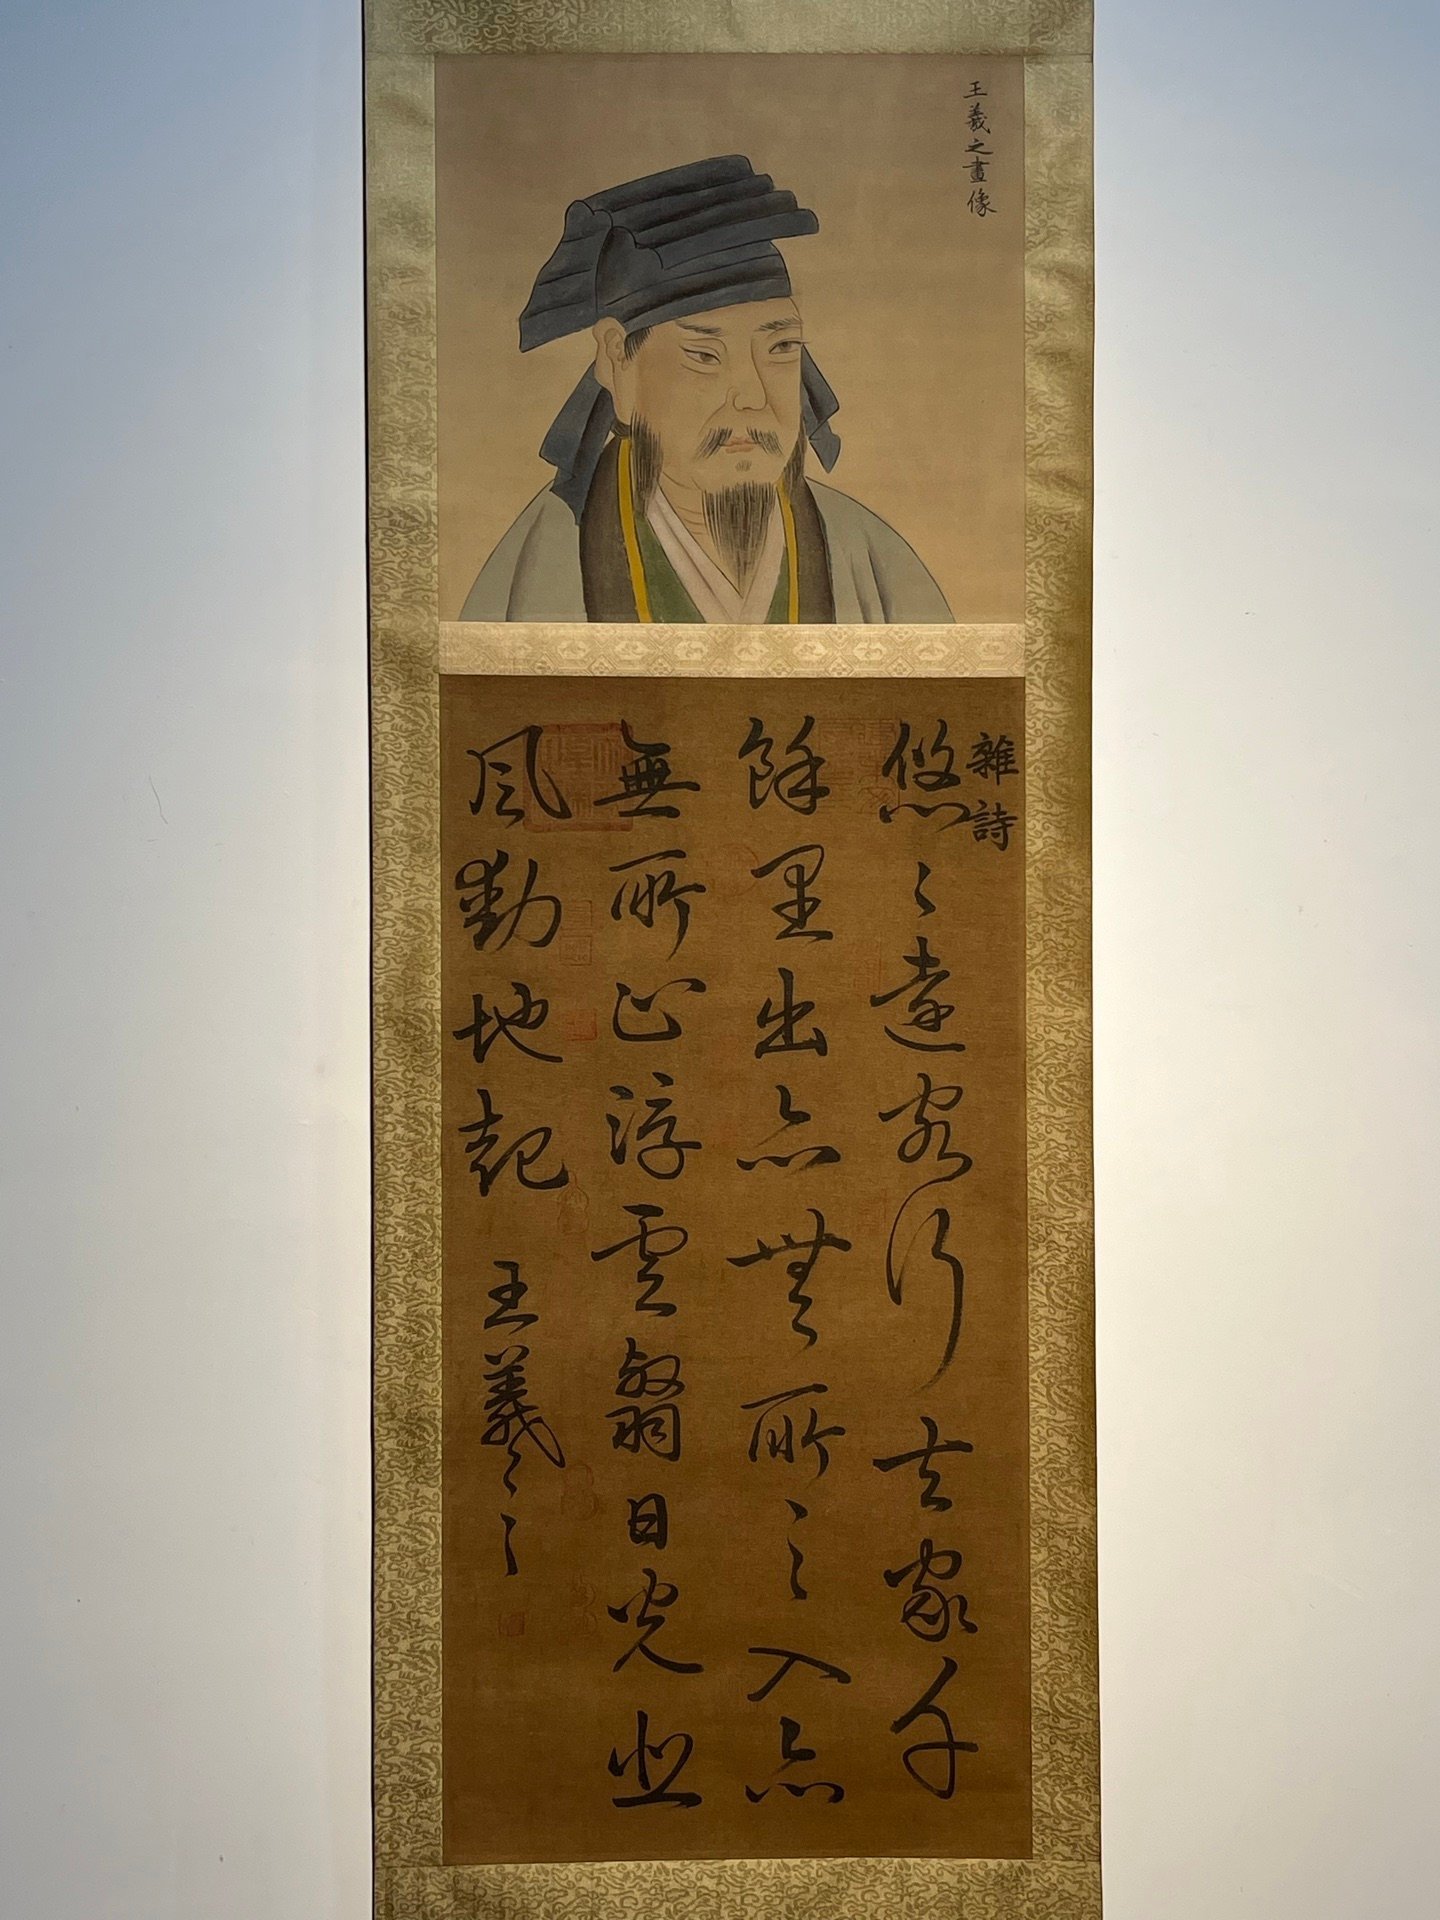 王羲之畫像
雜詩
悠〻遠客行去家千
餘里出亦無所之入亦
無所止浮雲翳日光悲
風動地起
王羲之